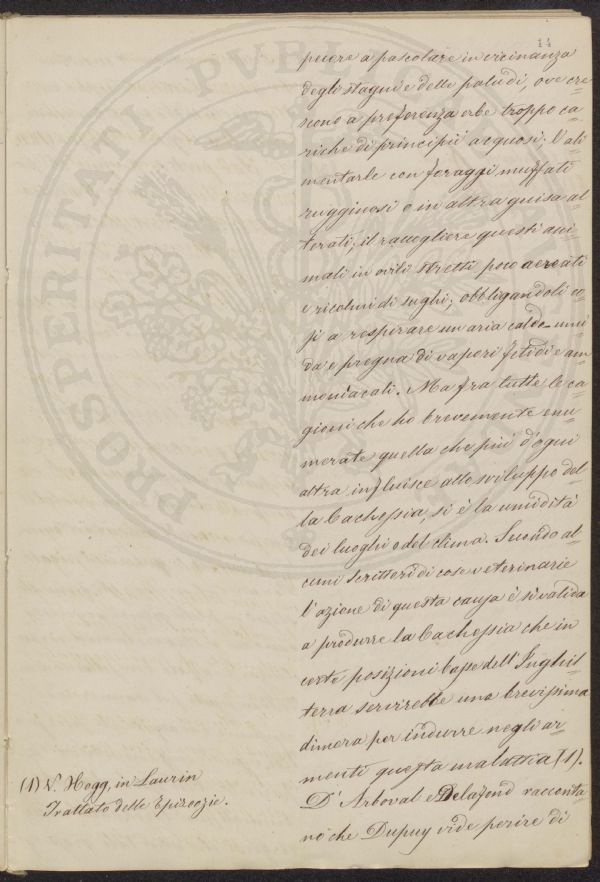 14
pecore a pascolare in vicinanza
degli stagni e delle paludi, ove cre=
scono a preferenza erbe troppo ca=
riche di principii acquosi; l'ali=
mentarle con foraggi muffati
rugginosi o in altra guisa al=
terati; il raccogliere questi ani=
mali in ovili stretti poco aereati
e ricolmi di sughi; obbligandoli co=
si a respirare un aria calda umi=
da e pregna di vapori fetidi e am=
moniacali. Ma fra tutte le ca=
gioni che ho brevemente enu=
merate quella che più d'ogni
altra influisce allo sviluppo del=
la Cachessia, si è la umidità
dei luoghi o del clima. Secondo al=
cuni scrittori di cose veterinarie
l'azione di questa causa è si valida
a produrre la Cachessia che in
certe posizioni basse dell'Inghil=
terra servirebbe una brevissima
dimora per indurre negli ar=
menti questa malattia (1).
D'Arboval e Delafond racconta=
no che Dupuy vide perire di
(1) V. Hogg, in Laurin
Trattato delle Epizoozie.
PROSPERITATI PVBLI